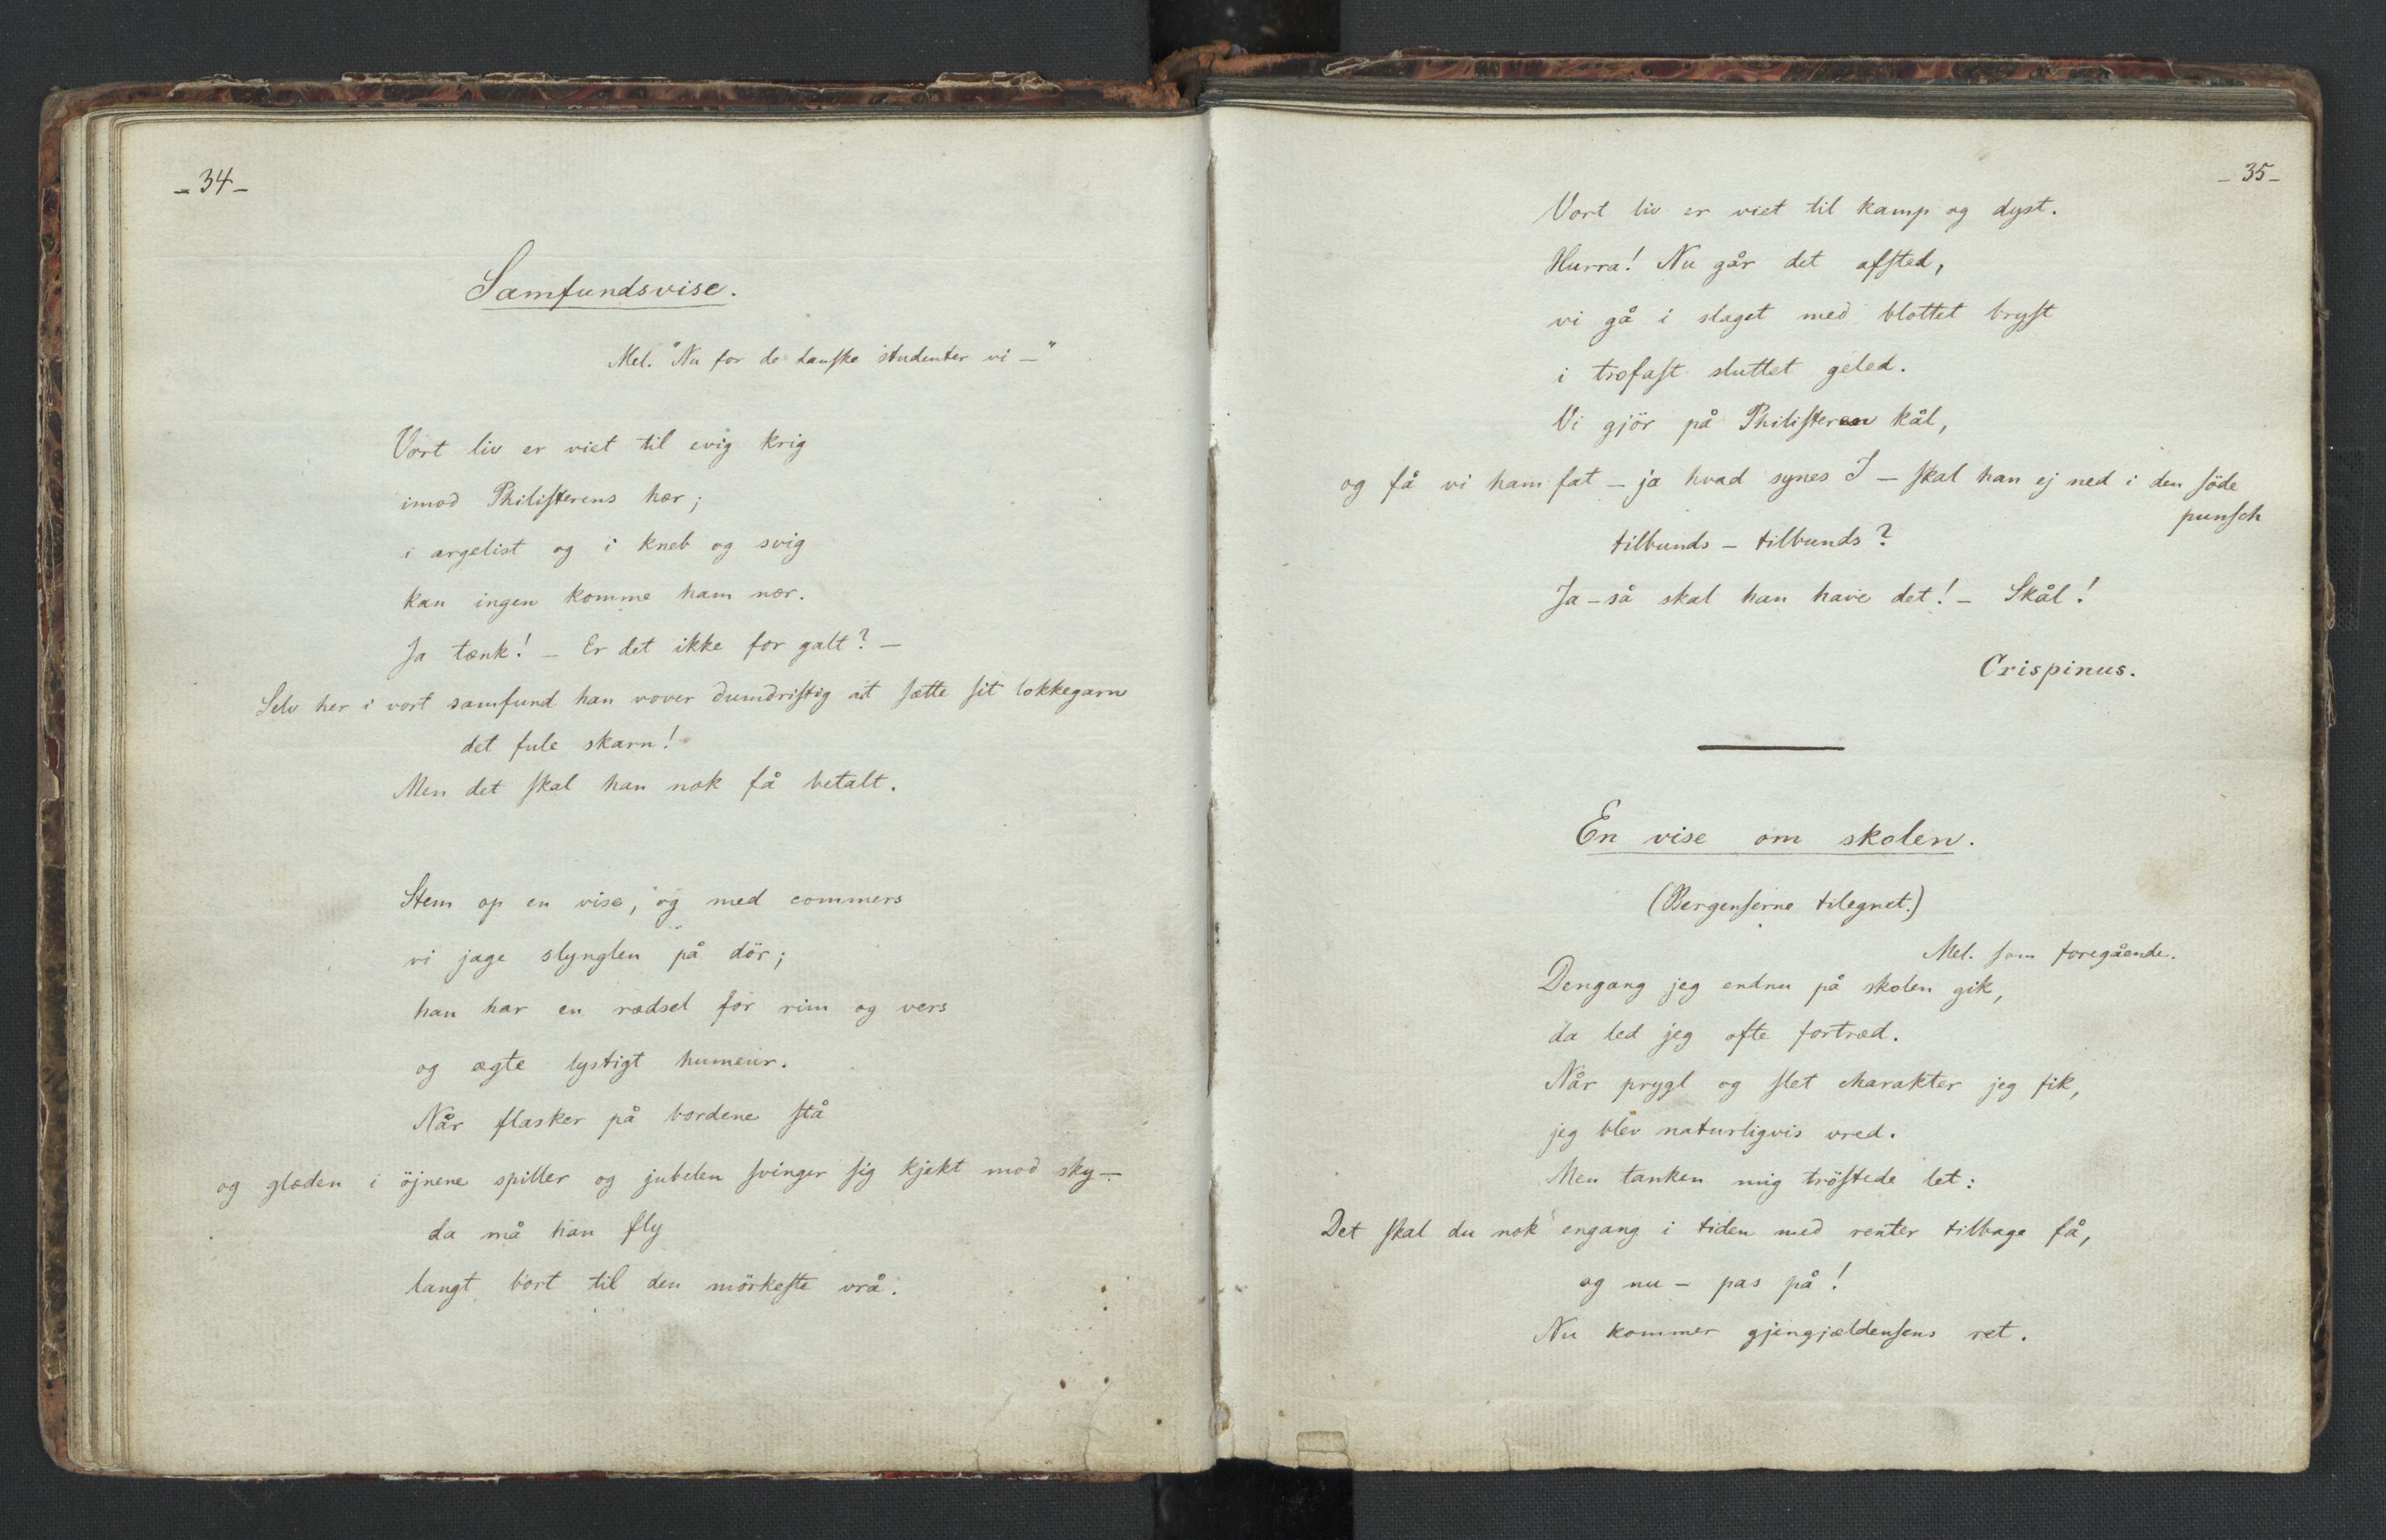 - 34 -
Samfundsvise.
Mel. "Nu for de danske studenter vi —"
Vort liv er viet til evig krig
imod Philisterens hær;
i argelist og i kneb og svig
kan ingen komme ham nær.
Ja tænk! — Er det ikke for galt? —
Selv her i vort samfund han vover dumdristig at sætte sit lokkegarn
det fule skarn!
Men det skal han nok få betalt.
Stem op en vise, og med commers
vi jage slynglen på dör;
han har en rædsel for rim og vers
og ægte lystigt humeur.
Når flasker på bordene stå
og glæden i öjnene spiller og jubelen svinger sig kjekt mod sky —
da må han fly
langt bort til den mörkeste vrå.
- 35 -
Vort liv er viet til kamp og dyst.
Hurra! Nu går det afsted,
vi gå i slaget med blottet bryst
i trofast sluttet geled.
Vi gjör på Philisteren kål,
og få vi ham fat — ja hvad synes I — skal han ej ned i den söde
punsch
tilbunds — tilbunds?
Ja — så skal han have det! — Skål!
Crispinus.
En vise om skolen.
(Bergenserne tilegnet.)
Mel. som foregående.
Dengang jeg endnu på skolen gik,
da led jeg ofte fortræd.
Når prygl og slet charakter jeg fik,
jeg blev naturligvis vred.
Men tanken mig tröstede let:
Det skal du nok engang i tiden med renter tilbage få,
og nu — pas på!
Nu kommer gjengjældensens ret.